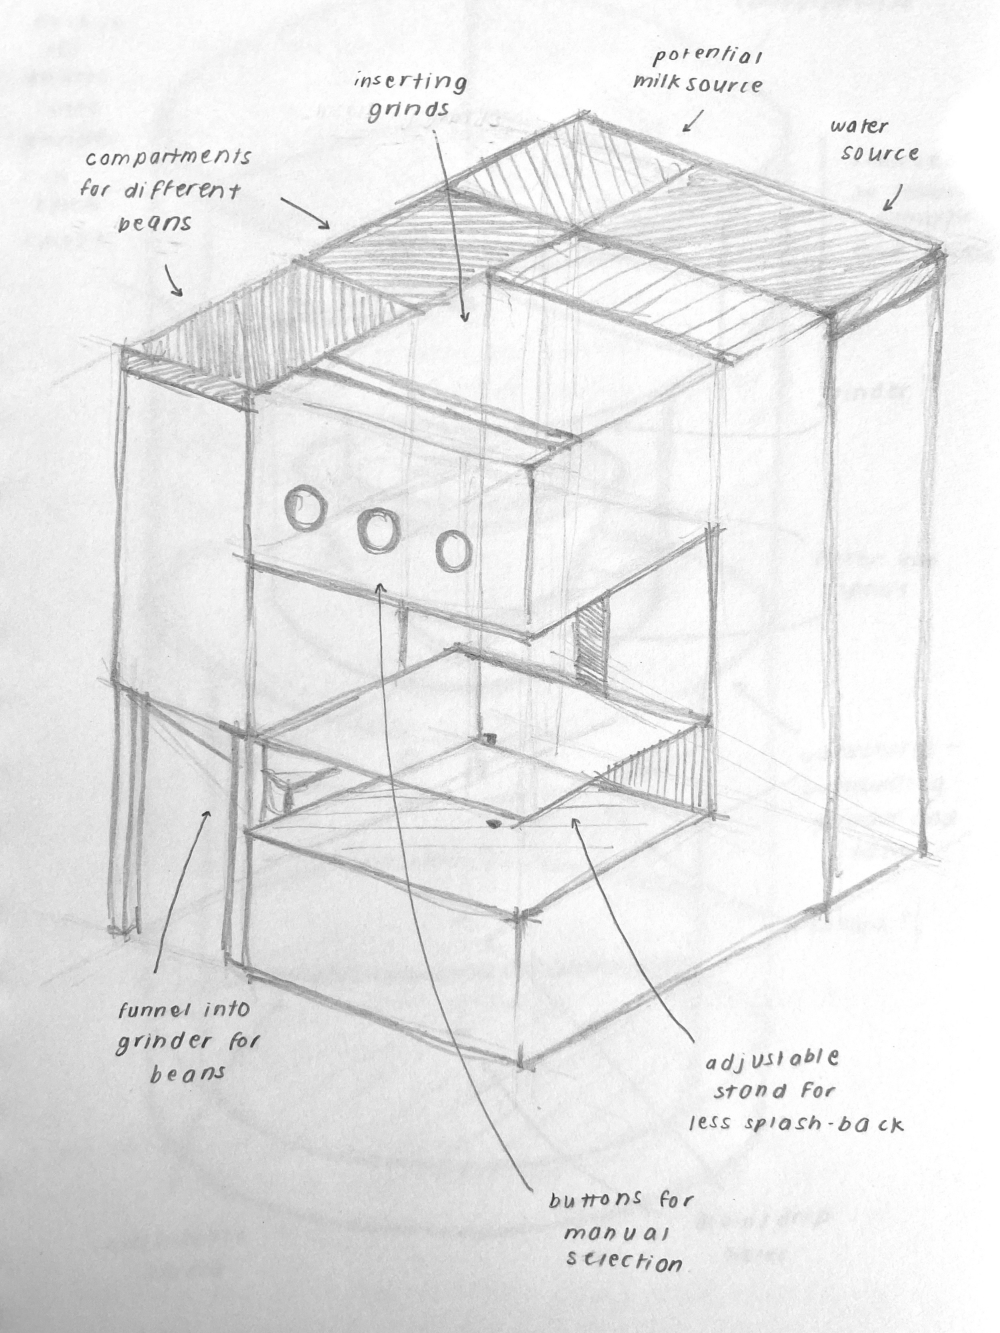 potential
milk source
inserting
grinds
water
source
compartments
for different
beans
funnel into
grinder for
beans
adjustable
stand for
less splash-back
buttons for
manual
selection